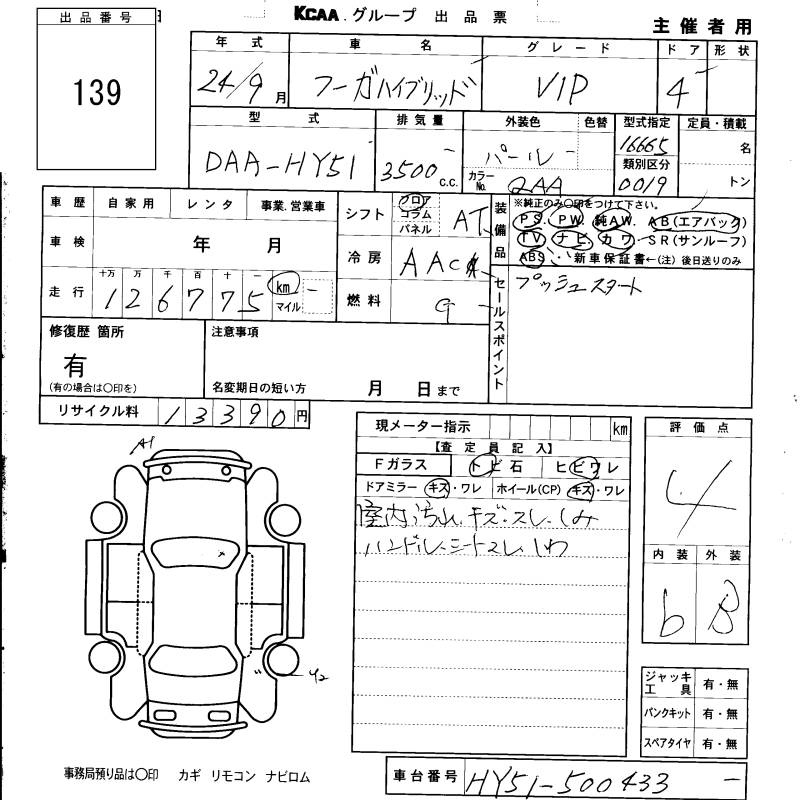 KCAA.グループ 出品票
主催者用
出品番号
139
年式 車名 グレード ドア 形状
24/9月 フーガハイブリッド VIP 4
型式 排気量 外装色 色替 型式指定 定員・積載
DAA-HY51 3500 c.c. パール 16665 名
カラーNo. 2AA 類別区分 0019 トン
車歴 自家用 レンタ 事業.営業車
車検 年 月
走行 十万 万 千 百 十 一
126775 km マイル
シフト フロア コラム パネル AT
冷房 AAC
燃料 G
装備品
※純正のみ〇印をつけて下さい。
PS. PW. 純AW. AB(エアバック)
TV ナビ. カワ. SR(サンルーフ)
ABS 新車保証書←(注) 後日送りのみ
セールスポイント
プッシュスタート
修復歴 箇所
有
(有の場合は〇印を)
注意事項
名変期日の短い方 月 日まで
リサイクル料 13390円
現メーター指示 km
【査定員記入】
Fガラス トビ石 ヒビワレ
ドアミラー キズ・ワレ ホイール(CP) キズ・ワレ
室内汚れ.キズ.スレ.しみ
ハンドル.シートスレ.しわ
評価点
4
内装 外装
b B
A1
Y2
ジャッキ工具 有・無
パンクキット 有・無
スペアタイヤ 有・無
事務局預り品は〇印 カギ リモコン ナビロム
車台番号 HY51-500433